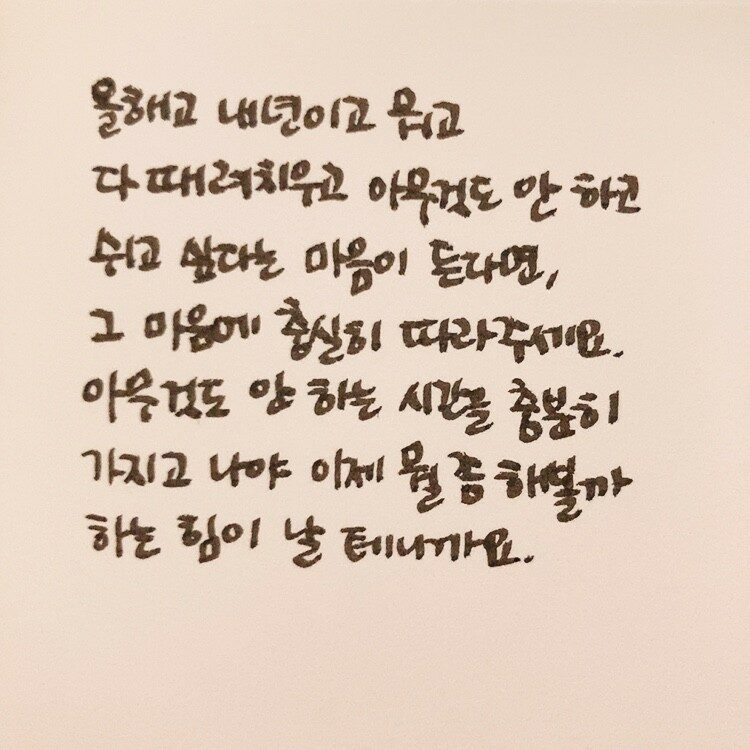 올해고 내년이고 뭐고
다 때려치우고 아무것도 안 하고
쉬고 싶다는 마음이 든다면,
그 마음에 충실히 따라주세요.
아무것도 안 하는 시간을 충분히
가지고 나야 이제 뭘 좀 해볼까
하는 힘이 날 테니까요.